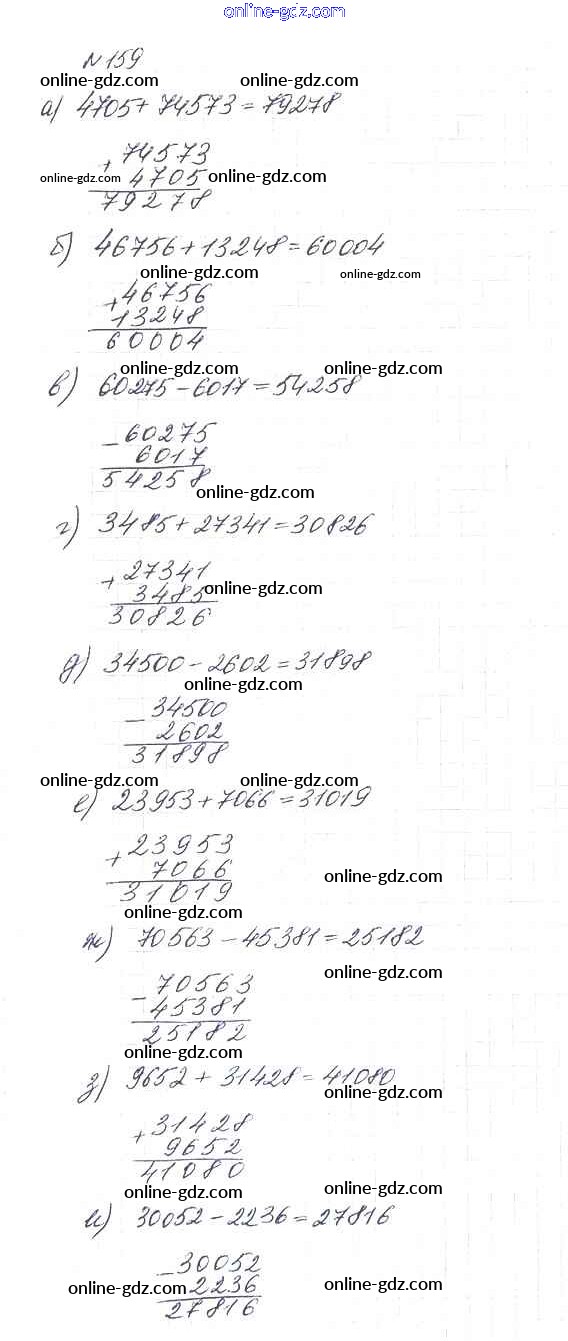 online-gdz.com
№159
online-gdz.com online-gdz.com
а) 4705 + 74573 = 79278
74573
online-gdz.com + 4705 online-gdz.com
79278
б) 46756 + 13248 = 60004
online-gdz.com online-gdz.com
+ 46756
13248
60004
online-gdz.com online-gdz.com
в) 60275 - 6017 = 54258
- 60275
6017
54258
online-gdz.com
г) 3485 + 27341 = 30826
+ 27341
3485 online-gdz.com
30826
д) 34500 - 2602 = 31898
online-gdz.com
- 34500
2602
31898
online-gdz.com online-gdz.com
е) 23953 + 7066 = 31019
+ 23953
7066 online-gdz.com
31019
online-gdz.com
ж) 70563 - 45381 = 25182
online-gdz.com
- 70563
45381
25182
online-gdz.com
з) 9652 + 31428 = 41080
online-gdz.com
+ 31428
9652
41080
online-gdz.com online-gdz.com
и) 30052 - 2236 = 27816
- 30052
online-gdz.com 2236 online-gdz.com
27816